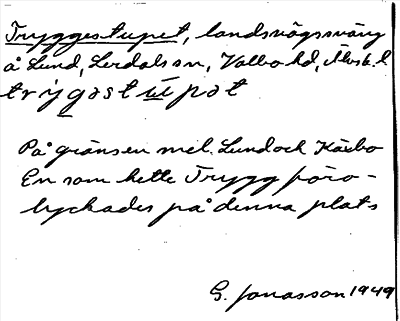 Tryggestupet, landsvägssväng
å Lund, Lerdals sn, Valbo hd, Älvsb. l
trỳgəstù̱pət
På gränsen mel. Lund och Kärbo
En som hette Trygg föro-
lyckades på denna plats
G. Jonasson 1949